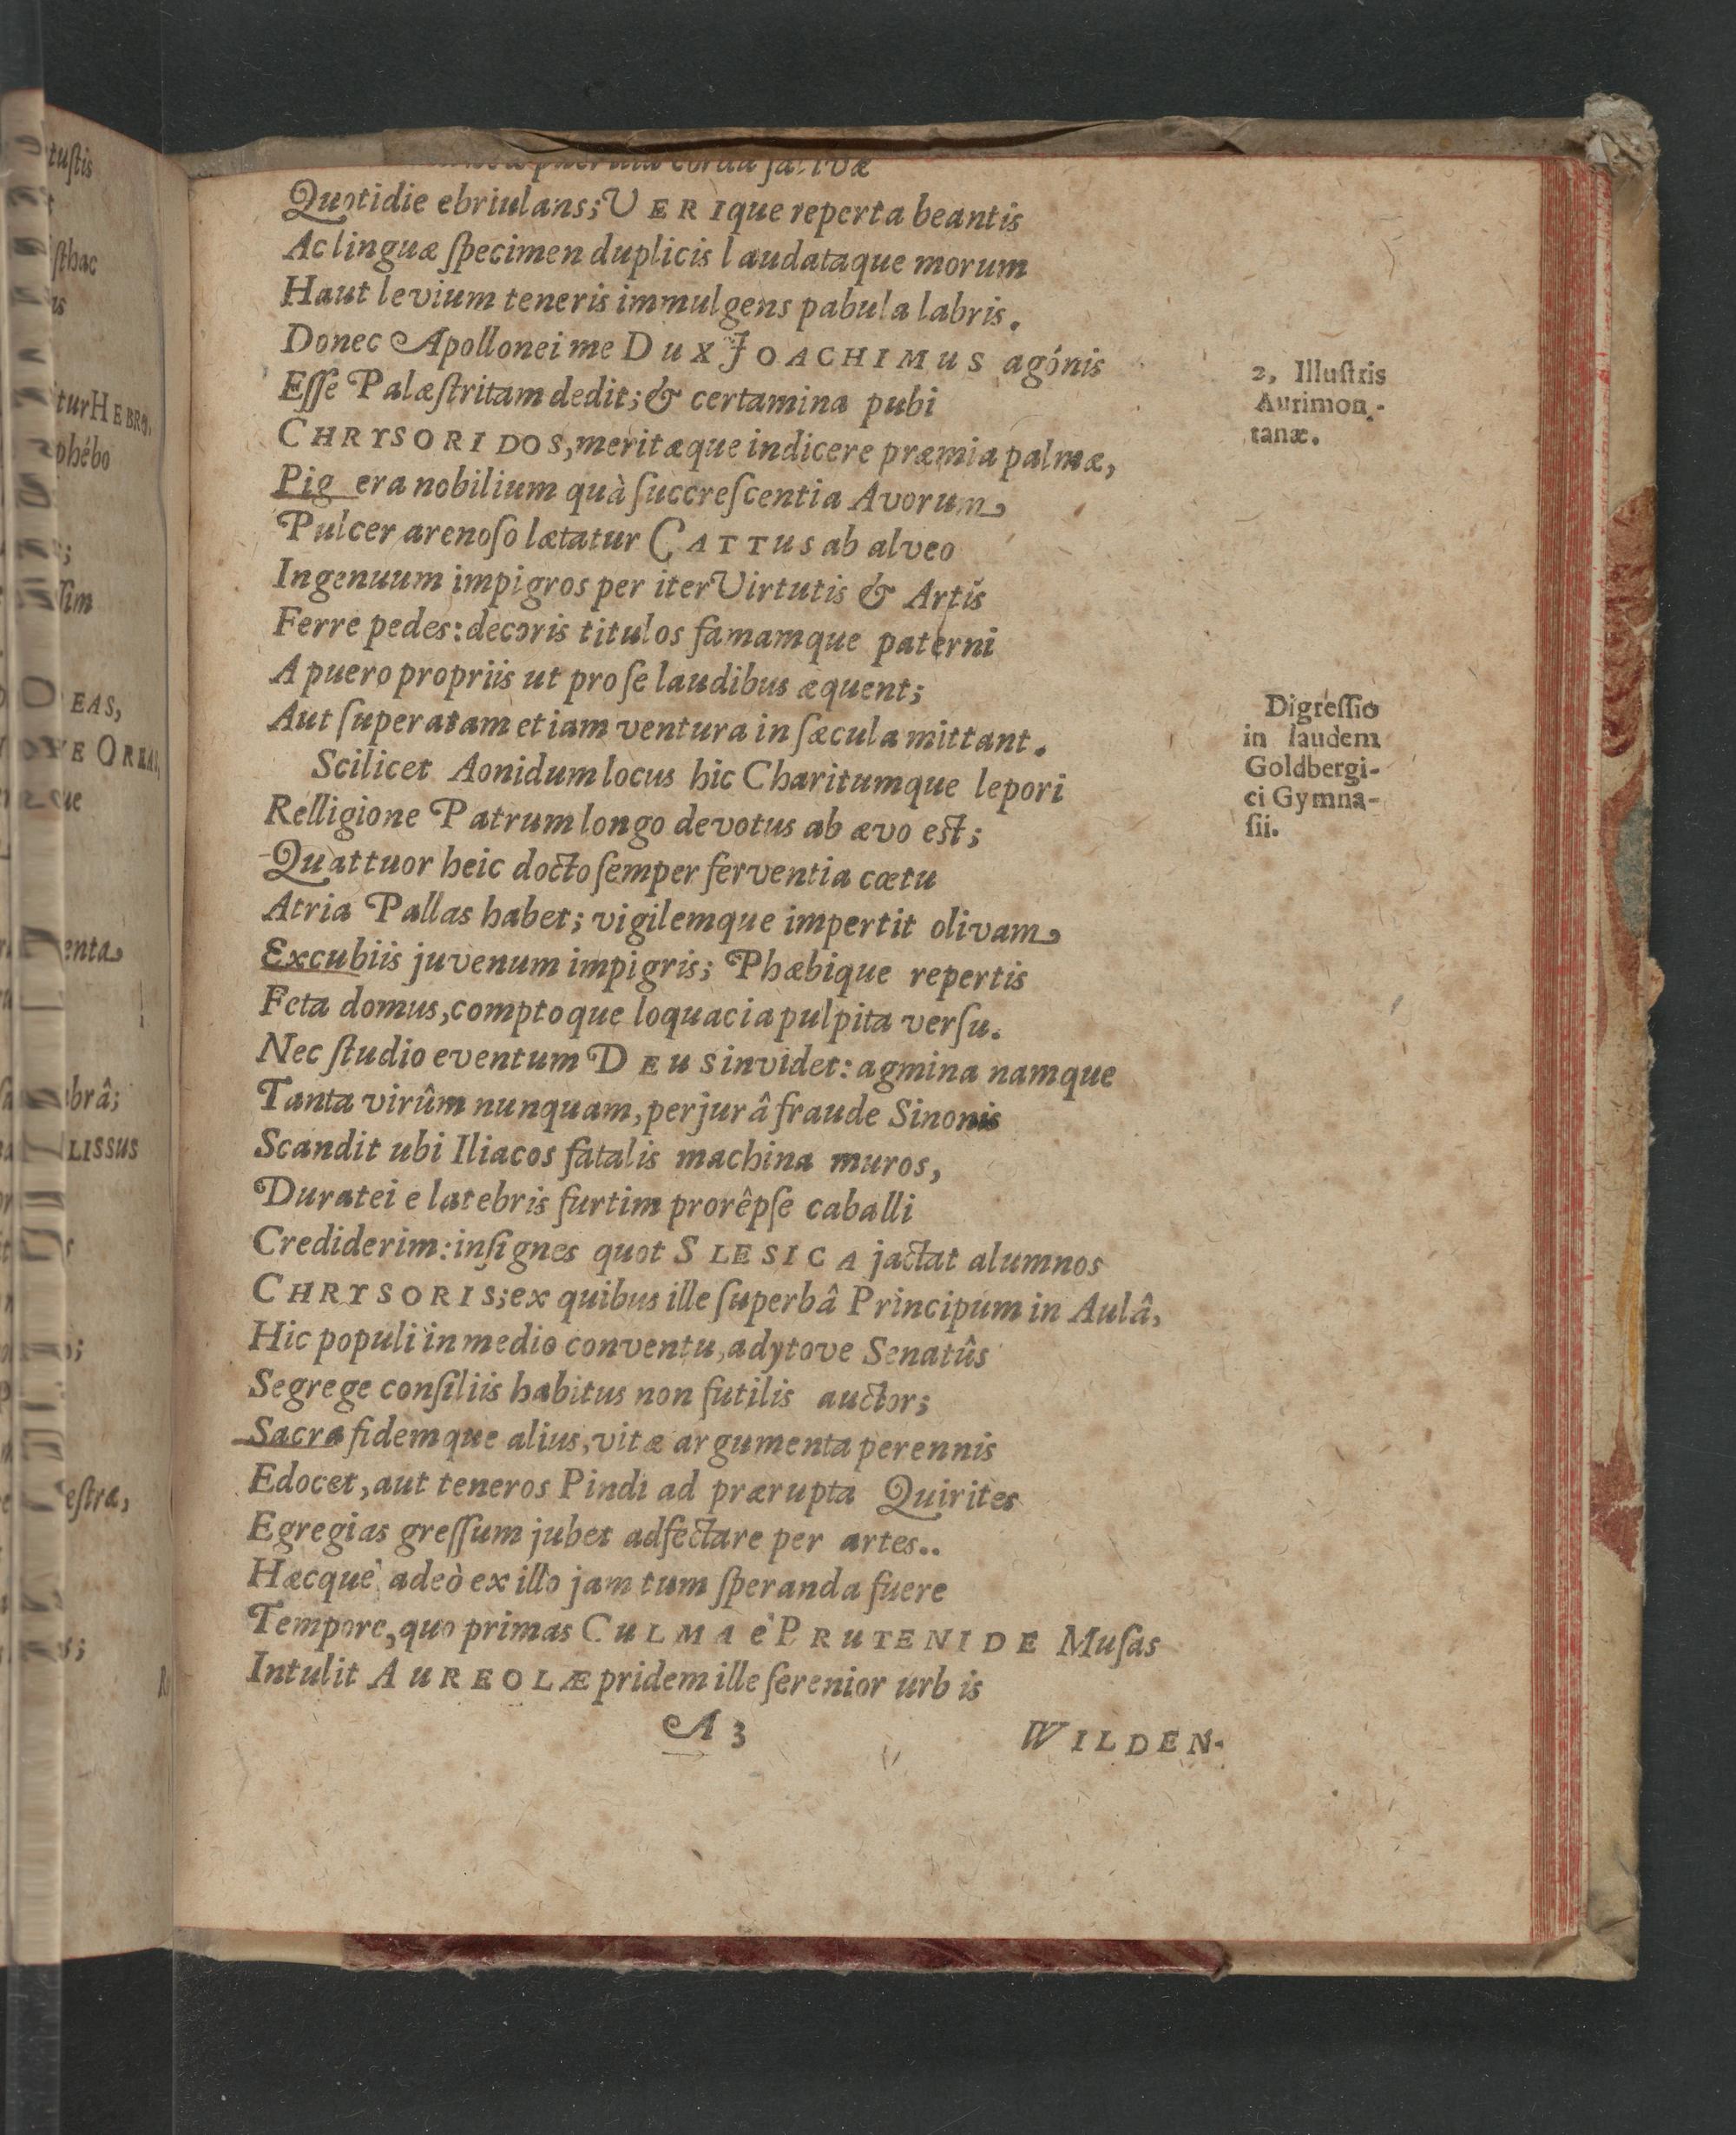 corda salivæ
Quotidie ebriulans; VERIque reperta beantis
Ac linguæ ſpecimen duplicis laudataque morum
Haut levium teneris immulgens pabula labris.
Donec Apollonei me DuX JOACHIMuS agónis
Eſſe Palæſtritam dedit; & certamina pubi
CHRYSORIDOS, meritæque indicere præmia palmæ,
Pig era nobilium quà ſuccreſcentia Avorum
Pulcer arenoſo lætatur CATTuS ab alveo
Ingenuum impigros per iter Virtutis & Artis
Ferre pedes: decoris titulos famamque paterni
A puero propriis ut pro ſe laudibus æquent;
Aut ſuperatam etiam ventura in ſæcula mittant.
Scilicet Aonidum locus hic Charitumque lepori
Relligione Patrum longo devotus ab ævo eſt;
Quattuor heic docto ſemper ferventia cœtu
Atria Pallas habet; vigilemque impertit olivam
Excubiis juvenum impigris; Phæbique repertis
Feta domus, comptoque loquacia pulpita verſu.
Nec ſtudio eventum DEuS invidet: agmina namque
Tanta virûm nunquam, perjurâ fraude Sinonis
Scandit ubi Iliacos fatalis machina muros,
Duratei e latebris furtim prorêpſe caballi
Crediderim: inſignes quot SLESICA jactat alumnos
CHRYSORIS; ex quibus ille ſuperbâ Principum in Aulâ,
Hic populi in medio conventu, adytove Senatûs
Segrege conſiliis habitus non futilis auctor;
Sacra fidemque alius, vitæ argumenta perennis
Edocet, aut teneros Pindi ad prærupta Quirites
Egregias greſſum jubet adfectare per artes..
Hæcque adeò ex illo jam tum ſperanda fuere
Tempore, quo primas CuLMA è PRuTENIDE Muſas
Intulit AuREOLÆ pridem ille ſerenior urb is
A 3
WILDEN-
2, Illuſtris
Aurimon-
tanæ.
Digreſſio
in laudem
Goldbergi-
ci Gymna-
ſii.
tuſtis
ſthac
turHEBRO,
phébo
EAS,
enta
brâ;
LISSuS
eſtra,